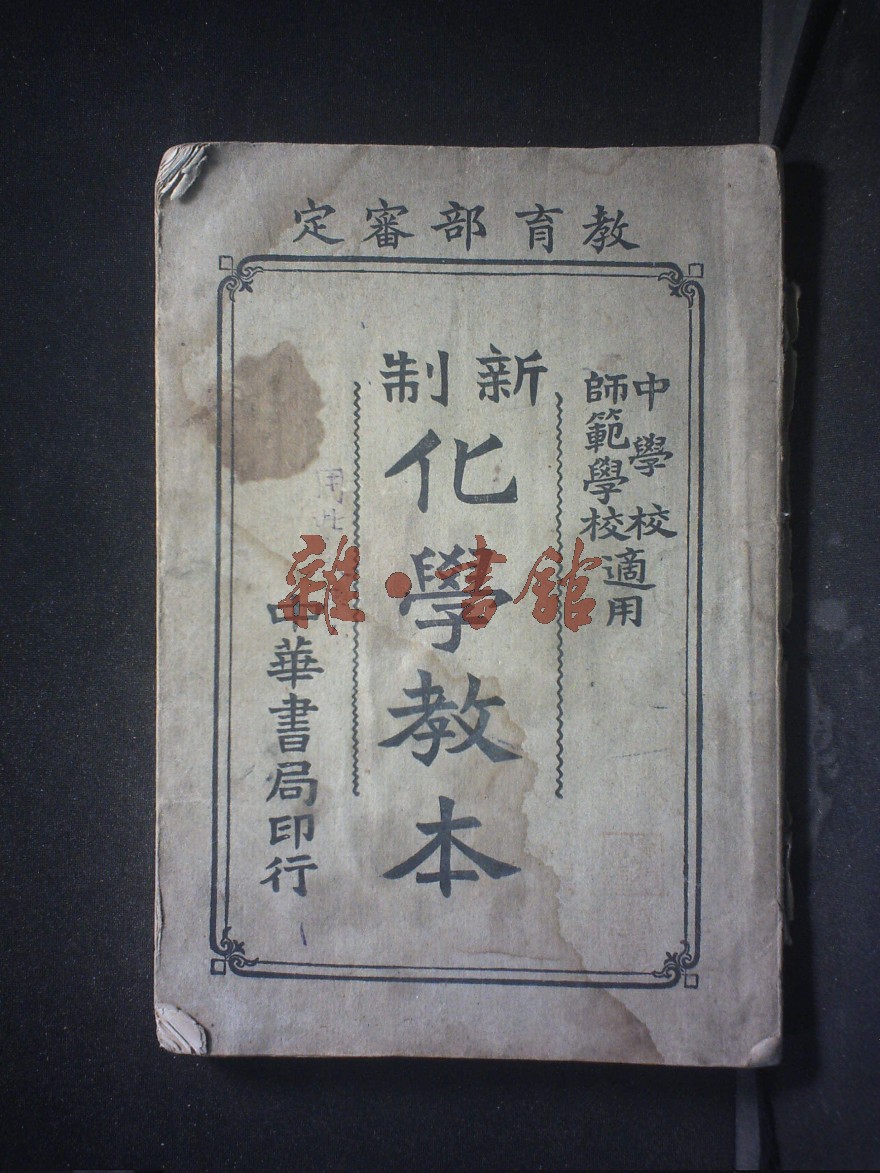 教育部審定
中學校
師範學校
適用
新制
化學教本
中華書局印行
雜·書館